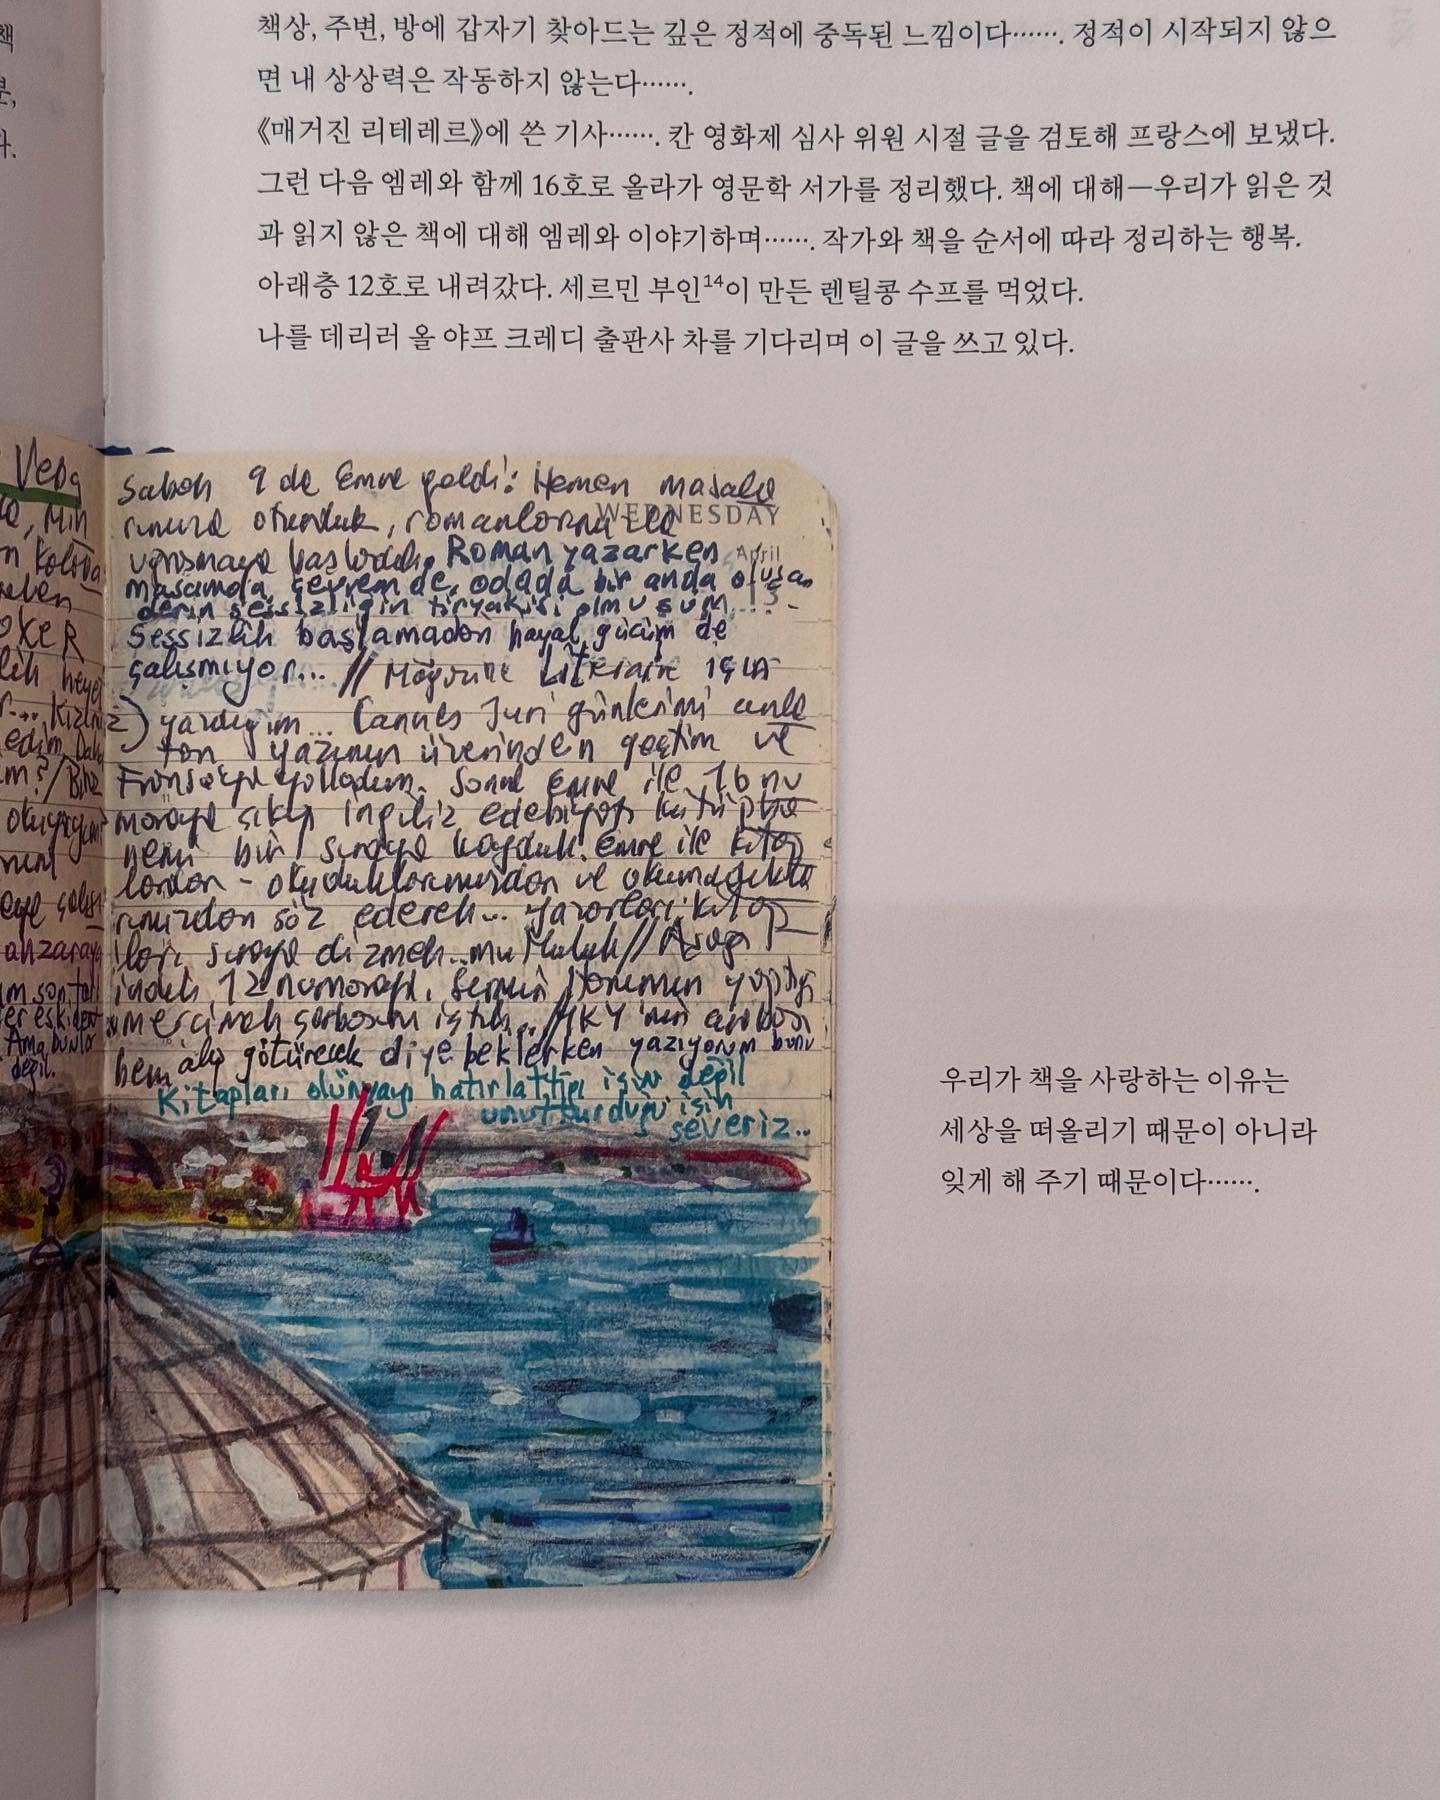 책상, 주변, 방에 갑자기 찾아드는 깊은 정적에 중독된 느낌이다……. 정적이 시작되지 않으
면 내 상상력은 작동하지 않는다…….
《매거진 리테레르》에 쓴 기사……. 칸 영화제 심사 위원 시절 글을 검토해 프랑스에 보냈다.
그런 다음 엠레와 함께 16호로 올라가 영문학 서가를 정리했다. 책에 대해—우리가 읽은 것
과 읽지 않은 책에 대해 엠레와 이야기하며……. 작가와 책을 순서에 따라 정리하는 행복.
아래층 12호로 내려갔다. 세르민 부인14이 만든 렌틸콩 수프를 먹었다.
나를 데리러 올 야프 크레디 출판사 차를 기다리며 이 글을 쓰고 있다.
Sabah 9 da Emre geldi: Hemen masala
rımıza oturduk, romanlarımızla
WEDNESDAY
uğraşmaya başladık. Roman yazarken
April
masamda, çevremde, odada bir anda oluşan
derin sessizliğin tiryakisi olmuşum...
Sessizlik başlamadan hayal gücüm de
çalışmıyor... // Magazine Littéraire için
yazdığım... Cannes Juri günlerimi anla
tan yazının üzerinden geçtim ve
Fransaya yolladım. Sonra Emre ile 16 nu
maraya çıkıp ingiliz edebiyatı kütüpha
nemi bir sıraya koyduk. Emre ile kitap
lardan - okuduklarımızdan ve okumadıkla
rımızdan söz ederek... Yazarları, kitap
ları sıraya dizmek... mutluluk // Aşağı
indik 12 numaraya. Sermin Hanımın yaptığı
mercimek çorbasını içtik... // YKY'nin arabası
beni alıp götürecek diye beklerken yazıyorum bunu
Kitapları dünyayı hatırlattığı için değil
unutturduğu için
severiz...
우리가 책을 사랑하는 이유는
세상을 떠올리기 때문이 아니라
잊게 해 주기 때문이다…….